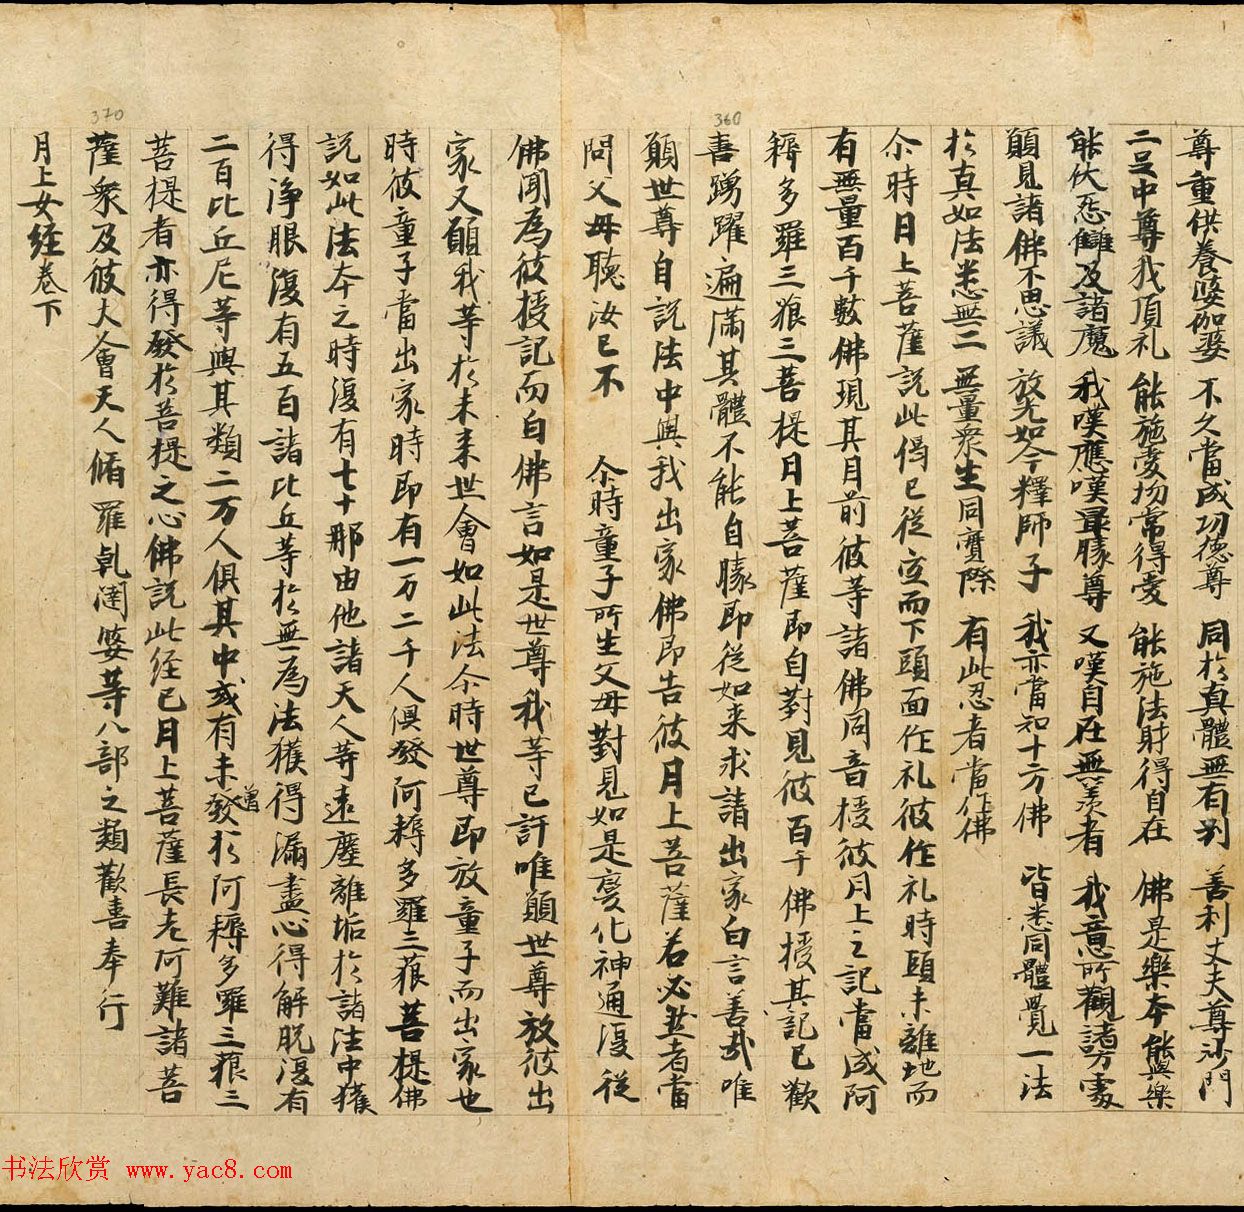 尊重供養婆伽婆 不久當成功德尊 同於真體無有別 善利丈夫尊沙門
二足中尊我頂礼 能施愛物常得愛 能施法財得自在 佛是樂本能與樂
能伏怨讎及諸魔 我嘆應嘆最勝尊 又嘆自在無羨者 我意所觀諸方處
願見諸佛不思議 放光如今釋師子 我亦當知十方佛 皆悉同體覺一法
於真如法悉無二 無量衆生同實際 有此忍者當作佛
尒時月上菩薩說此偈已從空而下頭面作礼彼作礼時頭未離地而
有無量百千數佛現其目前彼等諸佛同音授彼月上之記當成阿
耨多羅三狼三菩提月上菩薩即自對見彼百千佛授其記已歡
360
喜踴躍遍滿其體不能自勝即從如来求請出家白言善哉唯
願世尊自說法中與我出家佛即告彼月上菩薩若必然者當
問父母聽汝已不 尒時童子所生父母對見如是變化神通復從
佛聞為彼授記而白佛言如是世尊我等已許唯願世尊放彼出
家又願我等於未来世會如此法尒時世尊即放童子而出家也
時彼童子當出家時即有一万二千人俱發阿耨多羅三藐菩提佛
說如此法夲之時復有七十那由他諸天人等遠塵離垢於諸法中獲
得淨眼復有五百諸比丘等於無為法獲得漏盡心得解脫復有
二百比丘尼等與其類二万人俱其中或有未曾發於阿耨多羅三藐三
菩提者亦得發於菩提之心佛說此经已月上菩薩長老阿難諸菩
370
薩衆及彼大會天人脩羅乹闥婆等八部之類歡喜奉行
月上女経卷下
书法欣赏 www.yac8.com